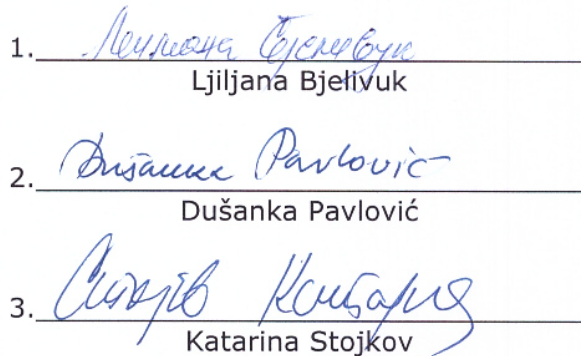 1. Љиљана Бјеливук
Ljiljana Bjelivuk
2. Dušanka Pavlović
Dušanka Pavlović
3. Стојков Катарина
Katarina Stojkov